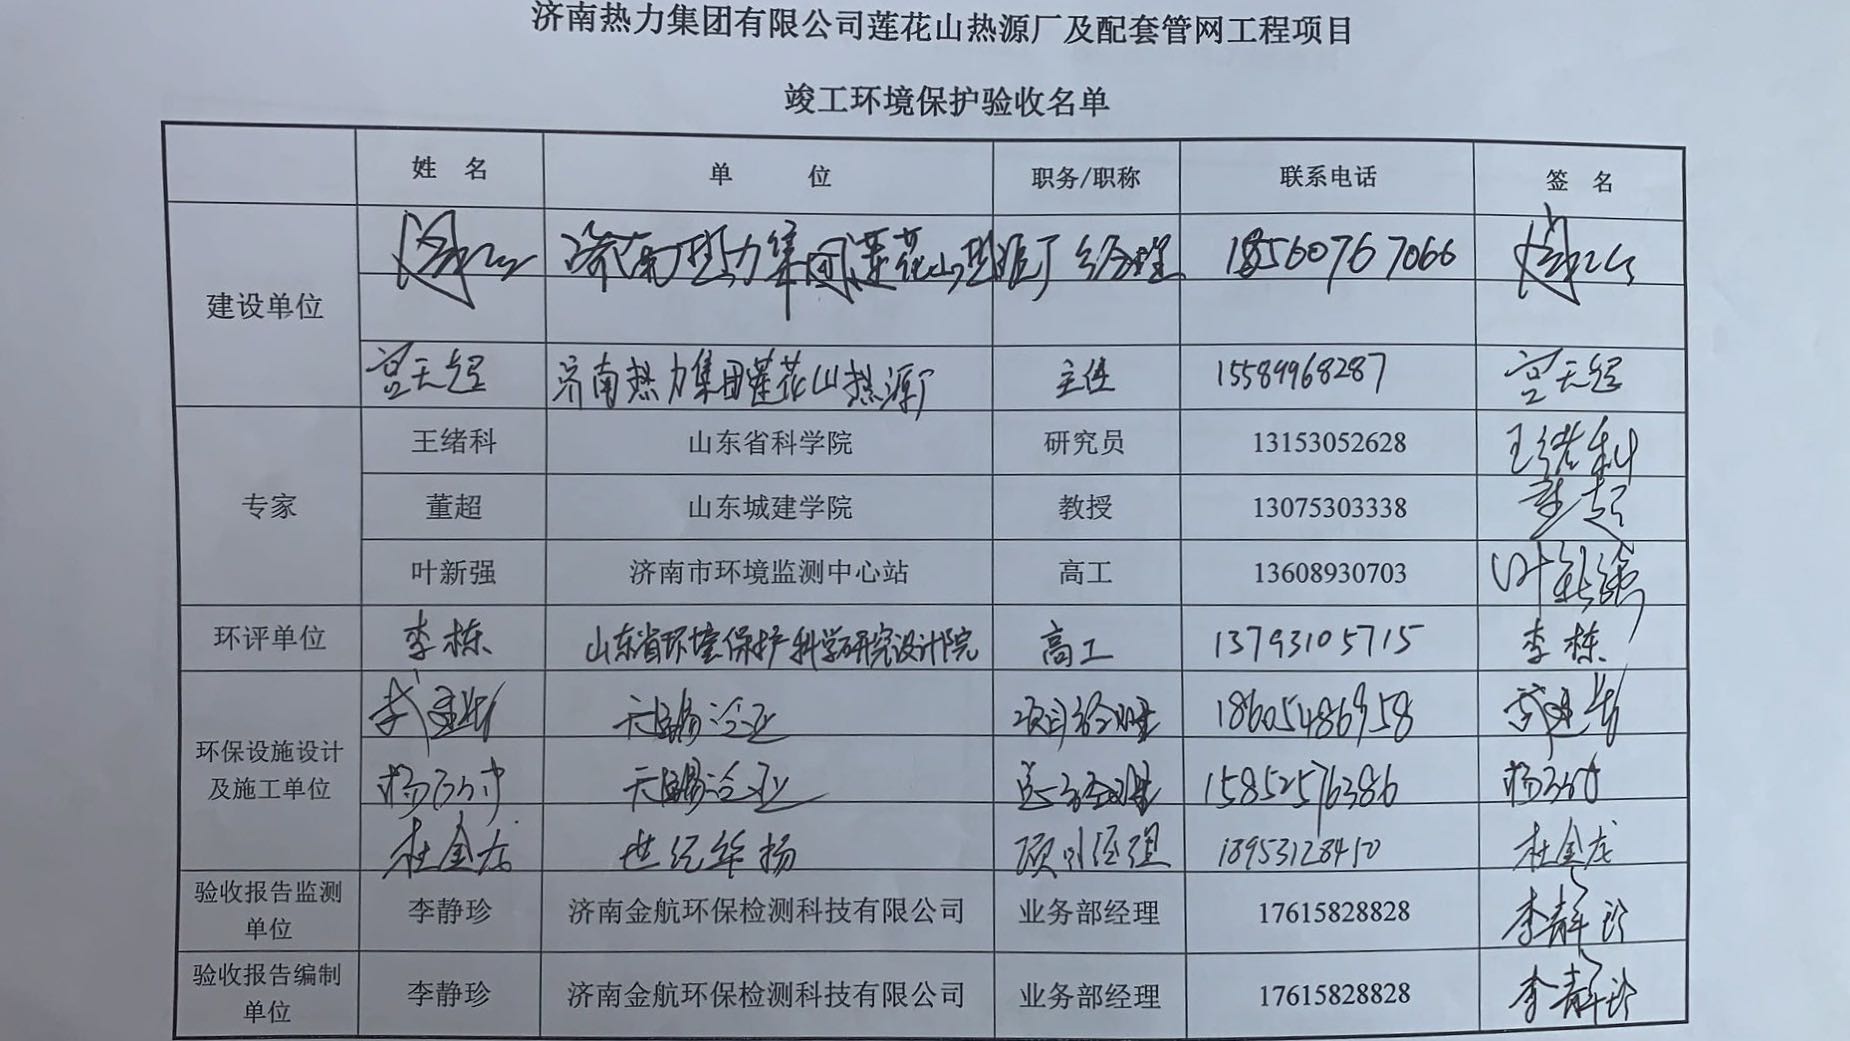 济南热力集团有限公司莲花山热源厂及配套管网工程项目
竣工环境保护验收名单
姓 名 单 位 职务/职称 联系电话 签 名
建设单位
济南热力集团莲花山热源厂 经理 18560767066
济南热力集团莲花山热源厂 主任 15589968287
专家
王绪科 山东省科学院 研究员 13153052628 王绪科
董超 山东城建学院 教授 13075303338 董超
叶新强 济南市环境监测中心站 高工 13608930703 叶新强
环评单位 李栋 山东省环境保护科学研究设计院 高工 13793105715 李栋
环保设施设计
及施工单位
项目经理 18605486958
总经理 15852576386
杜金龙 世纪华扬 项目经理 18953128410 杜金龙
验收报告监测
单位
李静珍 济南金航环保检测科技有限公司 业务部经理 17615828828 李静珍
验收报告编制
单位
李静珍 济南金航环保检测科技有限公司 业务部经理 17615828828 李静珍